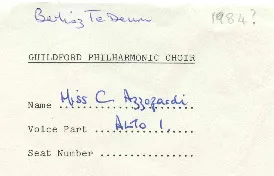 Berlioz Te Deum 1984?
GUILDFORD PHILHARMONIC CHOIR
Name Miss C. Azzopardi
Voice Part ALTO 1.
Seat Number ................